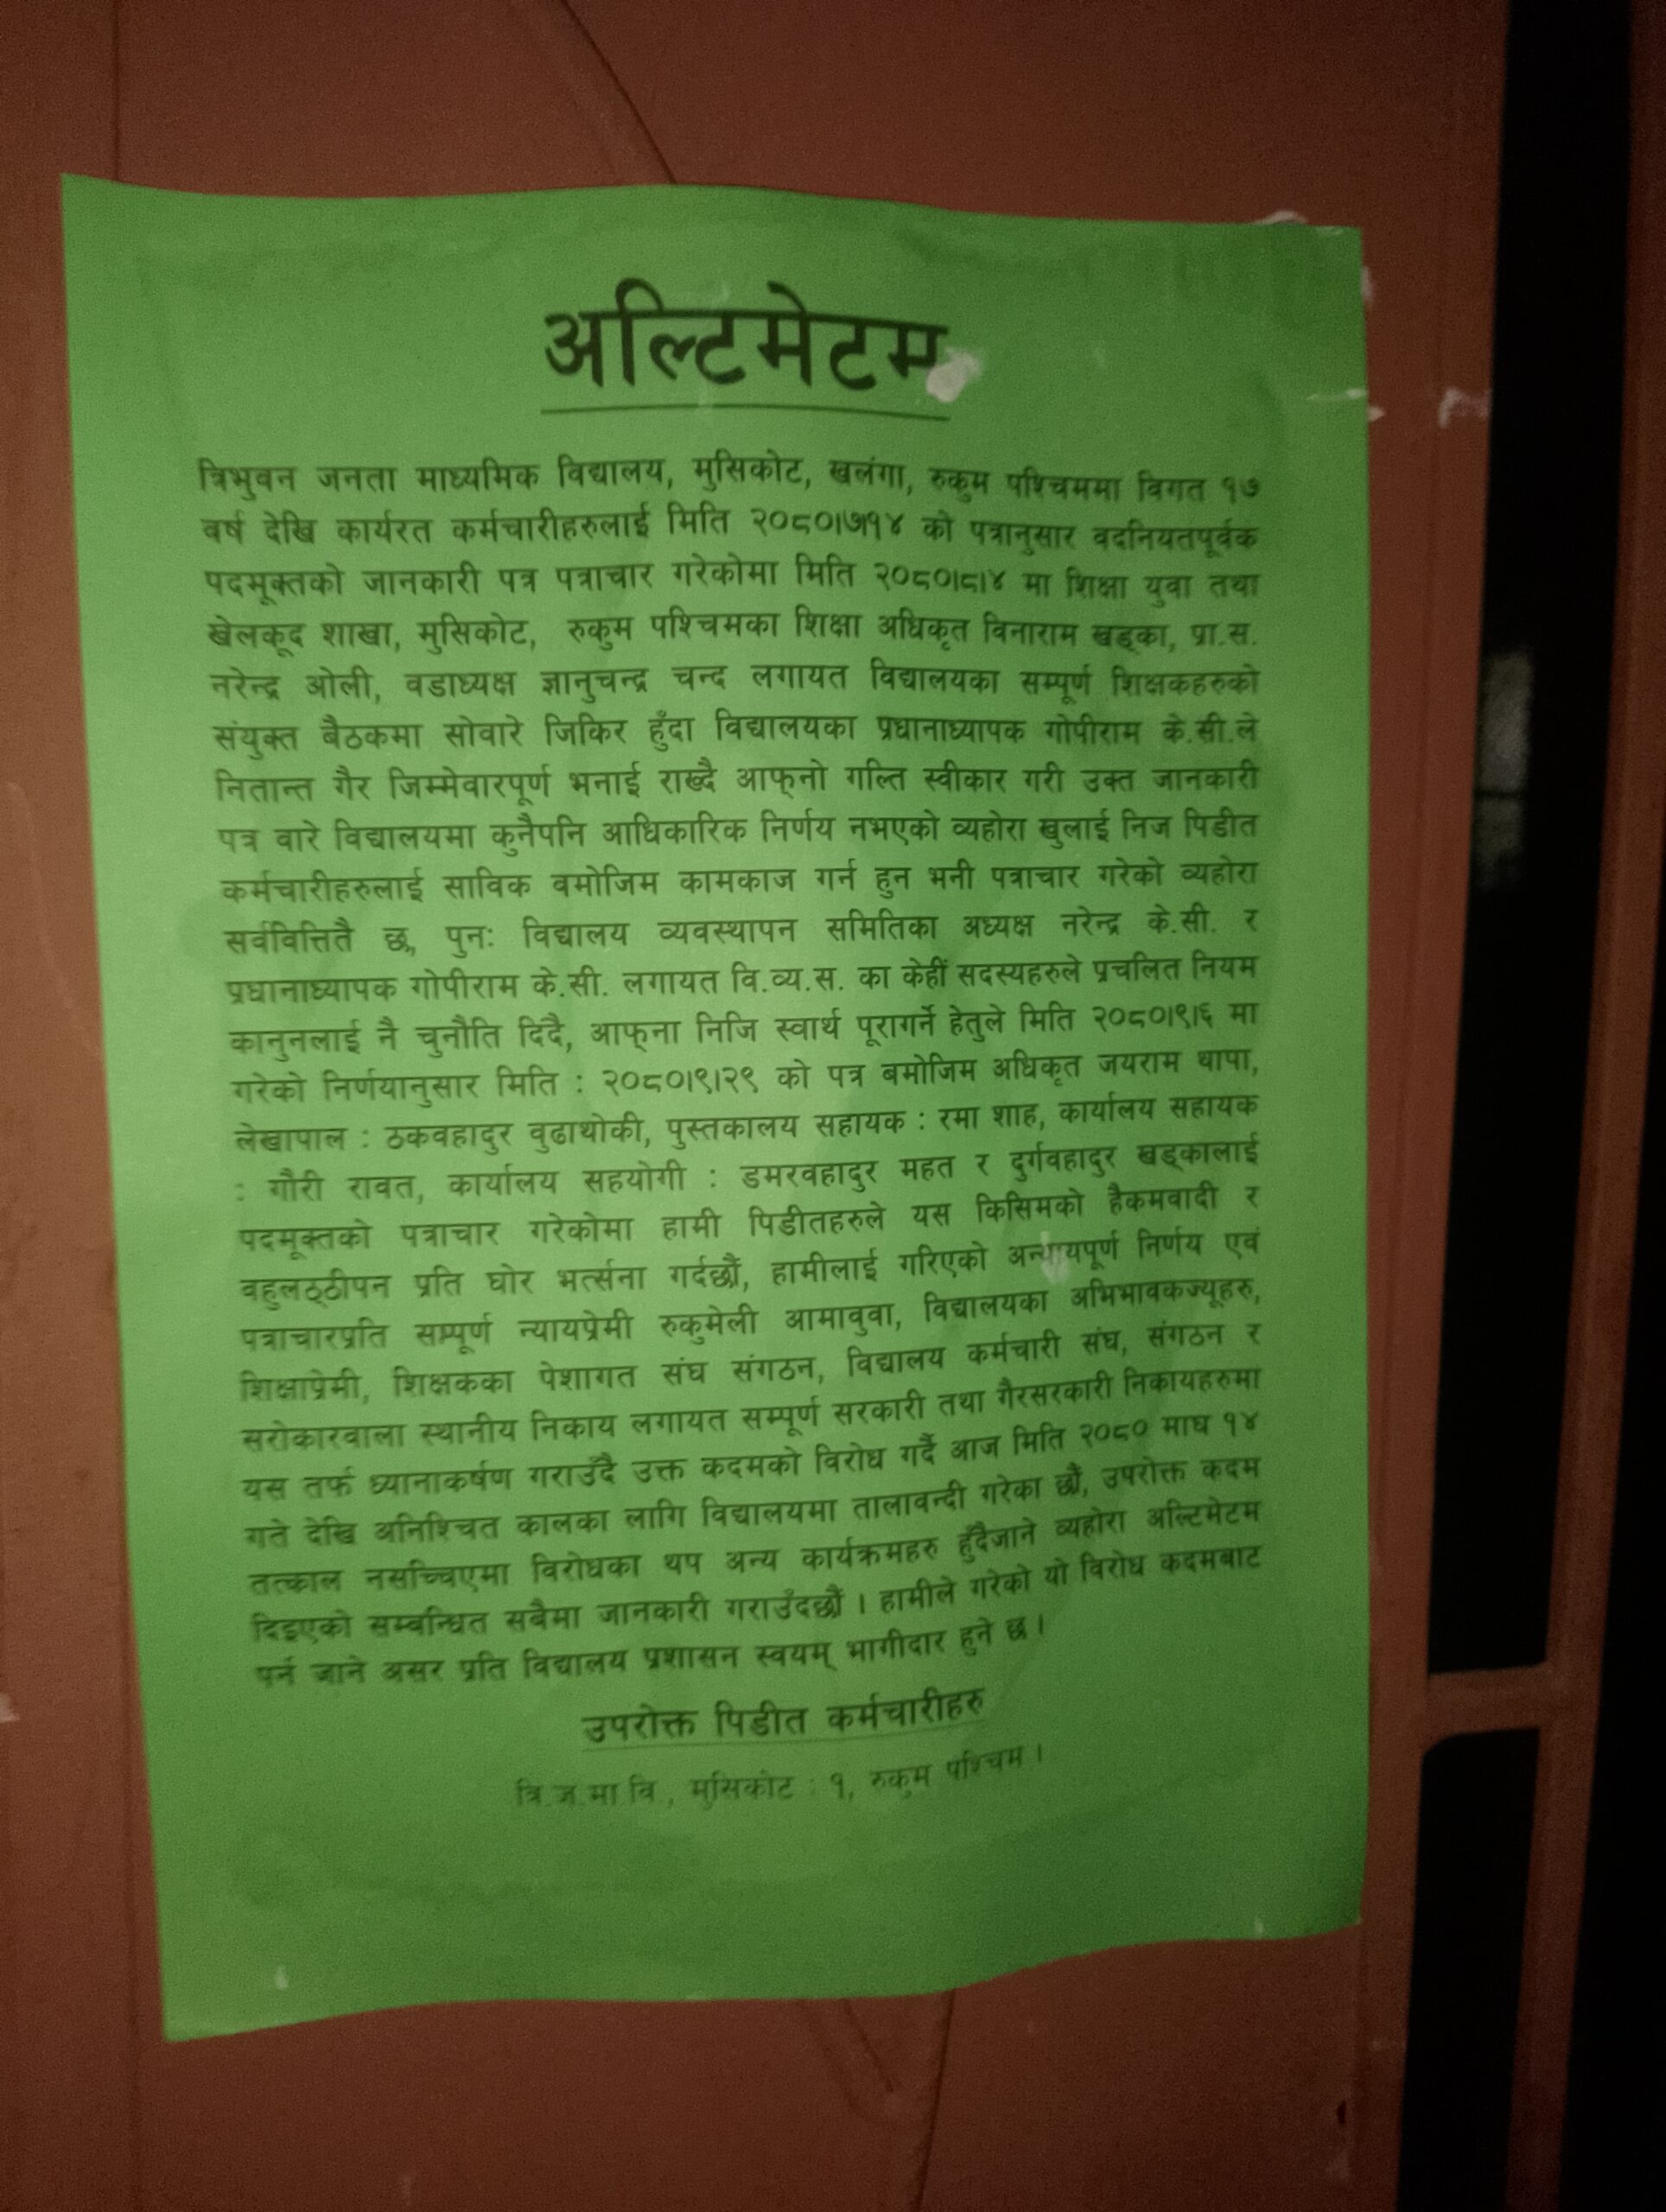 अल्टिमेटम
त्रिभुवन जनता माध्यमिक विद्यालय, मुसिकोट, खलंगा, रुकुम पश्चिममा विगत १७
वर्ष देखि कार्यरत कर्मचारीहरुलाई मिति २०८०।७।१४ को पत्रानुसार वदनियतपूर्वक
पदमूक्तको जानकारी पत्र पत्राचार गरेकोमा मिति २०८०।८।४ मा शिक्षा युवा तथा
खेलकूद शाखा, मुसिकोट, रुकुम पश्चिमका शिक्षा अधिकृत विनाराम खड्का, प्रा.स.
नरेन्द्र ओली, वडाध्यक्ष ज्ञानुचन्द्र चन्द लगायत विद्यालयका सम्पूर्ण शिक्षकहरुको
संयुक्त बैठकमा सोवारे जिकिर हुँदा विद्यालयका प्रधानाध्यापक गोपीराम के.सी.ले
नितान्त गैर जिम्मेवारपूर्ण भनाई राख्दै आफ्नो गल्ति स्वीकार गरी उक्त जानकारी
पत्र वारे विद्यालयमा कुनैपनि आधिकारिक निर्णय नभएको व्यहोरा खुलाई निज पिडीत
कर्मचारीहरुलाई साविक वमोजिम कामकाज गर्न हुन भनी पत्राचार गरेको व्यहोरा
सर्ववित्तितै छ, पुनः विद्यालय व्यवस्थापन समितिका अध्यक्ष नरेन्द्र के.सी. र
प्रधानाध्यापक गोपीराम के.सी. लगायत वि.व्य.स. का केहीं सदस्यहरुले प्रचलित नियम
कानुनलाई नै चुनौति दिंदै, आफ्ना निजि स्वार्थ पूरागर्ने हेतुले मिति २०८०।९।६ मा
गरेको निर्णयानुसार मिति : २०८०।९।२९ को पत्र बमोजिम अधिकृत जयराम थापा,
लेखापाल : ठकवहादुर वुढाथोकी, पुस्तकालय सहायक : रमा शाह, कार्यालय सहायक
: गौरी रावत, कार्यालय सहयोगी : डमरवहादुर महत र दुर्गवहादुर खड्कालाई
पदमूक्तको पत्राचार गरेकोमा हामी पिडीतहरुले यस किसिमको हैकमवादी र
वहुलठ्ठीपन प्रति घोर भर्त्सना गर्दछौं, हामीलाई गरिएको अन्यायपूर्ण निर्णय एवं
पत्राचारप्रति सम्पूर्ण न्यायप्रेमी रुकुमेली आमावुवा, विद्यालयका अभिभावकज्यूहरु,
शिक्षाप्रेमी, शिक्षकका पेशागत संघ संगठन, विद्यालय कर्मचारी संघ, संगठन र
सरोकारवाला स्थानीय निकाय लगायत सम्पूर्ण सरकारी तथा गैरसरकारी निकायहरुमा
यस तर्फ ध्यानाकर्षण गराउँदै उक्त कदमको विरोध गर्दै आज मिति २०८० माघ १४
गते देखि अनिश्चित कालका लागि विद्यालयमा तालावन्दी गरेका छौं, उपरोक्त कदम
तत्काल नसच्चिएमा विरोधका थप अन्य कार्यक्रमहरु हुँदैजाने व्यहोरा अल्टिमेटम
दिइएको सम्बन्धित सबैमा जानकारी गराउँदछौं । हामीले गरेको यो विरोध कदमबाट
पर्न जाने असर प्रति विद्यालय प्रशासन स्वयम् भागीदार हुने छ ।
उपरोक्त पिडीत कर्मचारीहरु
त्रि.ज.मा.वि., मुसिकोट : १, रुकुम पश्चिम ।